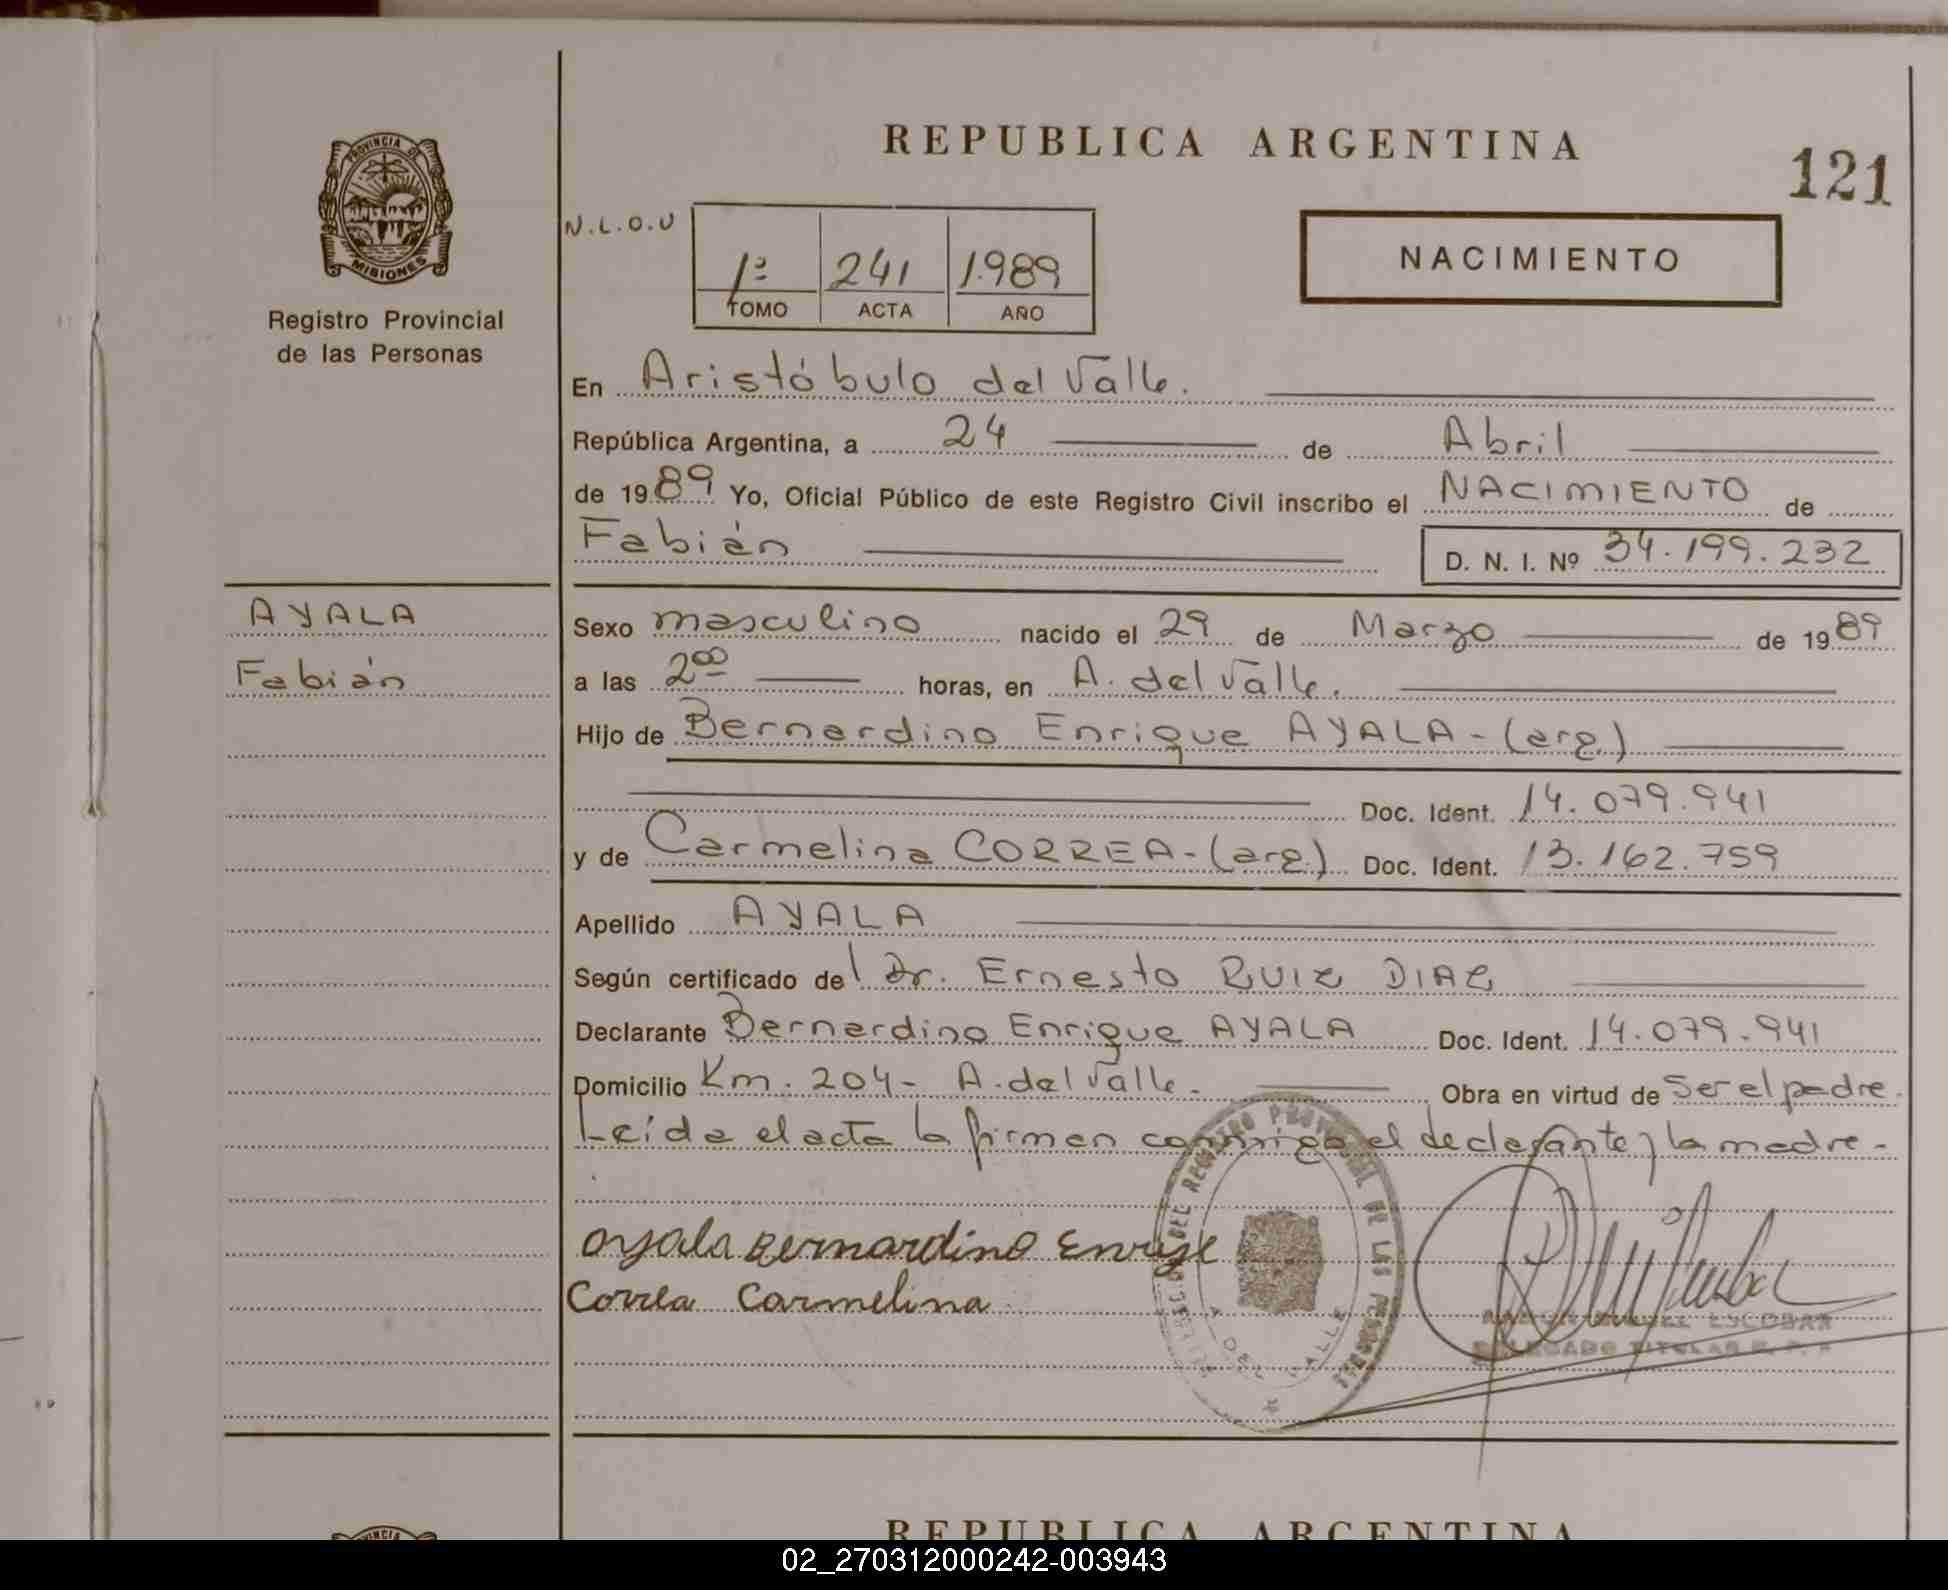 REPUBLICA ARGENTINA
121
PROVINCIA DE
MISIONES
Registro Provincial
de las Personas
N.L.O.U
1º 241 1.989
TOMO ACTA AÑO
NACIMIENTO
En Aristóbulo del Valle.
República Argentina, a 24 de Abril
de 1989 Yo, Oficial Público de este Registro Civil inscribo el NACIMIENTO de
Fabián D. N. I. Nº 34.199.232
AYALA
Fabián
Sexo masculino nacido el 29 de Marzo de 1989
a las 200 horas, en A. del Valle.
Hijo de Bernardino Enrique AYALA - (arg.)
Doc. Ident. 14.079.941
y de Carmelina CORREA - (arg.) Doc. Ident. 13.162.759
Apellido AYALA
Según certificado del Dr. Ernesto RUIZ DIAZ
Declarante Bernardino Enrique AYALA Doc. Ident. 14.079.941
Domicilio Km. 204 - A. del Valle - Obra en virtud de Ser el padre.
Leída el acta la firman conmigo el declarante y la madre -
ayala Bernardino
Correa Carmelina
DEL REGISTRO PROVINCIAL DE LAS PERSONAS
A DEL VALLE
ESCOBAR
DELEGADO TITULAR R. P. P
REPUBLICA ARGENTINA
02_270312000242-003943